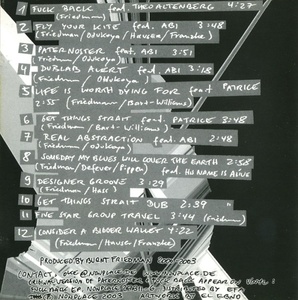 1 FUCK BACK feat. THEO ALTENBERG 4:27
(Friedman)
2 FLY YOUR KITE feat. ABI 3:48
(Friedman/Odukoya/Hausen/Franzke)
3 PATERNOSTER feat. ABI 3:51
(Friedman/Odukoya)
4 DUBLAB ALERT feat. ABI
(Friedman/Odukoya)
5 LIFE IS WORTH DYING FOR feat PATRICE
2:55 (Friedman/Bart-Williams)
6 GET THINGS STRAIT feat. PATRICE 3:48
(Friedman/Bart-Williams)
7 REAL ABSTRACTION feat. ABI 2:48
(Friedman/Odukoya)
8 SOMEDAY MY BLUES WILL COVER THE EARTH 2:58
(Friedman/Defever/Pippen) feat. HIS NAME IS ALIVE
9 DESIGNER GROOVE 3:29
(Friedman/Hass)
10 GET THINGS STRAIT DUB 2:39
11 FIVE STAR GROUP TRAVEL 3:44 (Friedman)
12 CONSIDER A BIDDER WALLET 4:22
(Friedman/Hausen/Franzke)
PRODUCED BY BURNT FRIEDMAN 2003
CONTACT:
NONPLACE 2003 ARTWORK